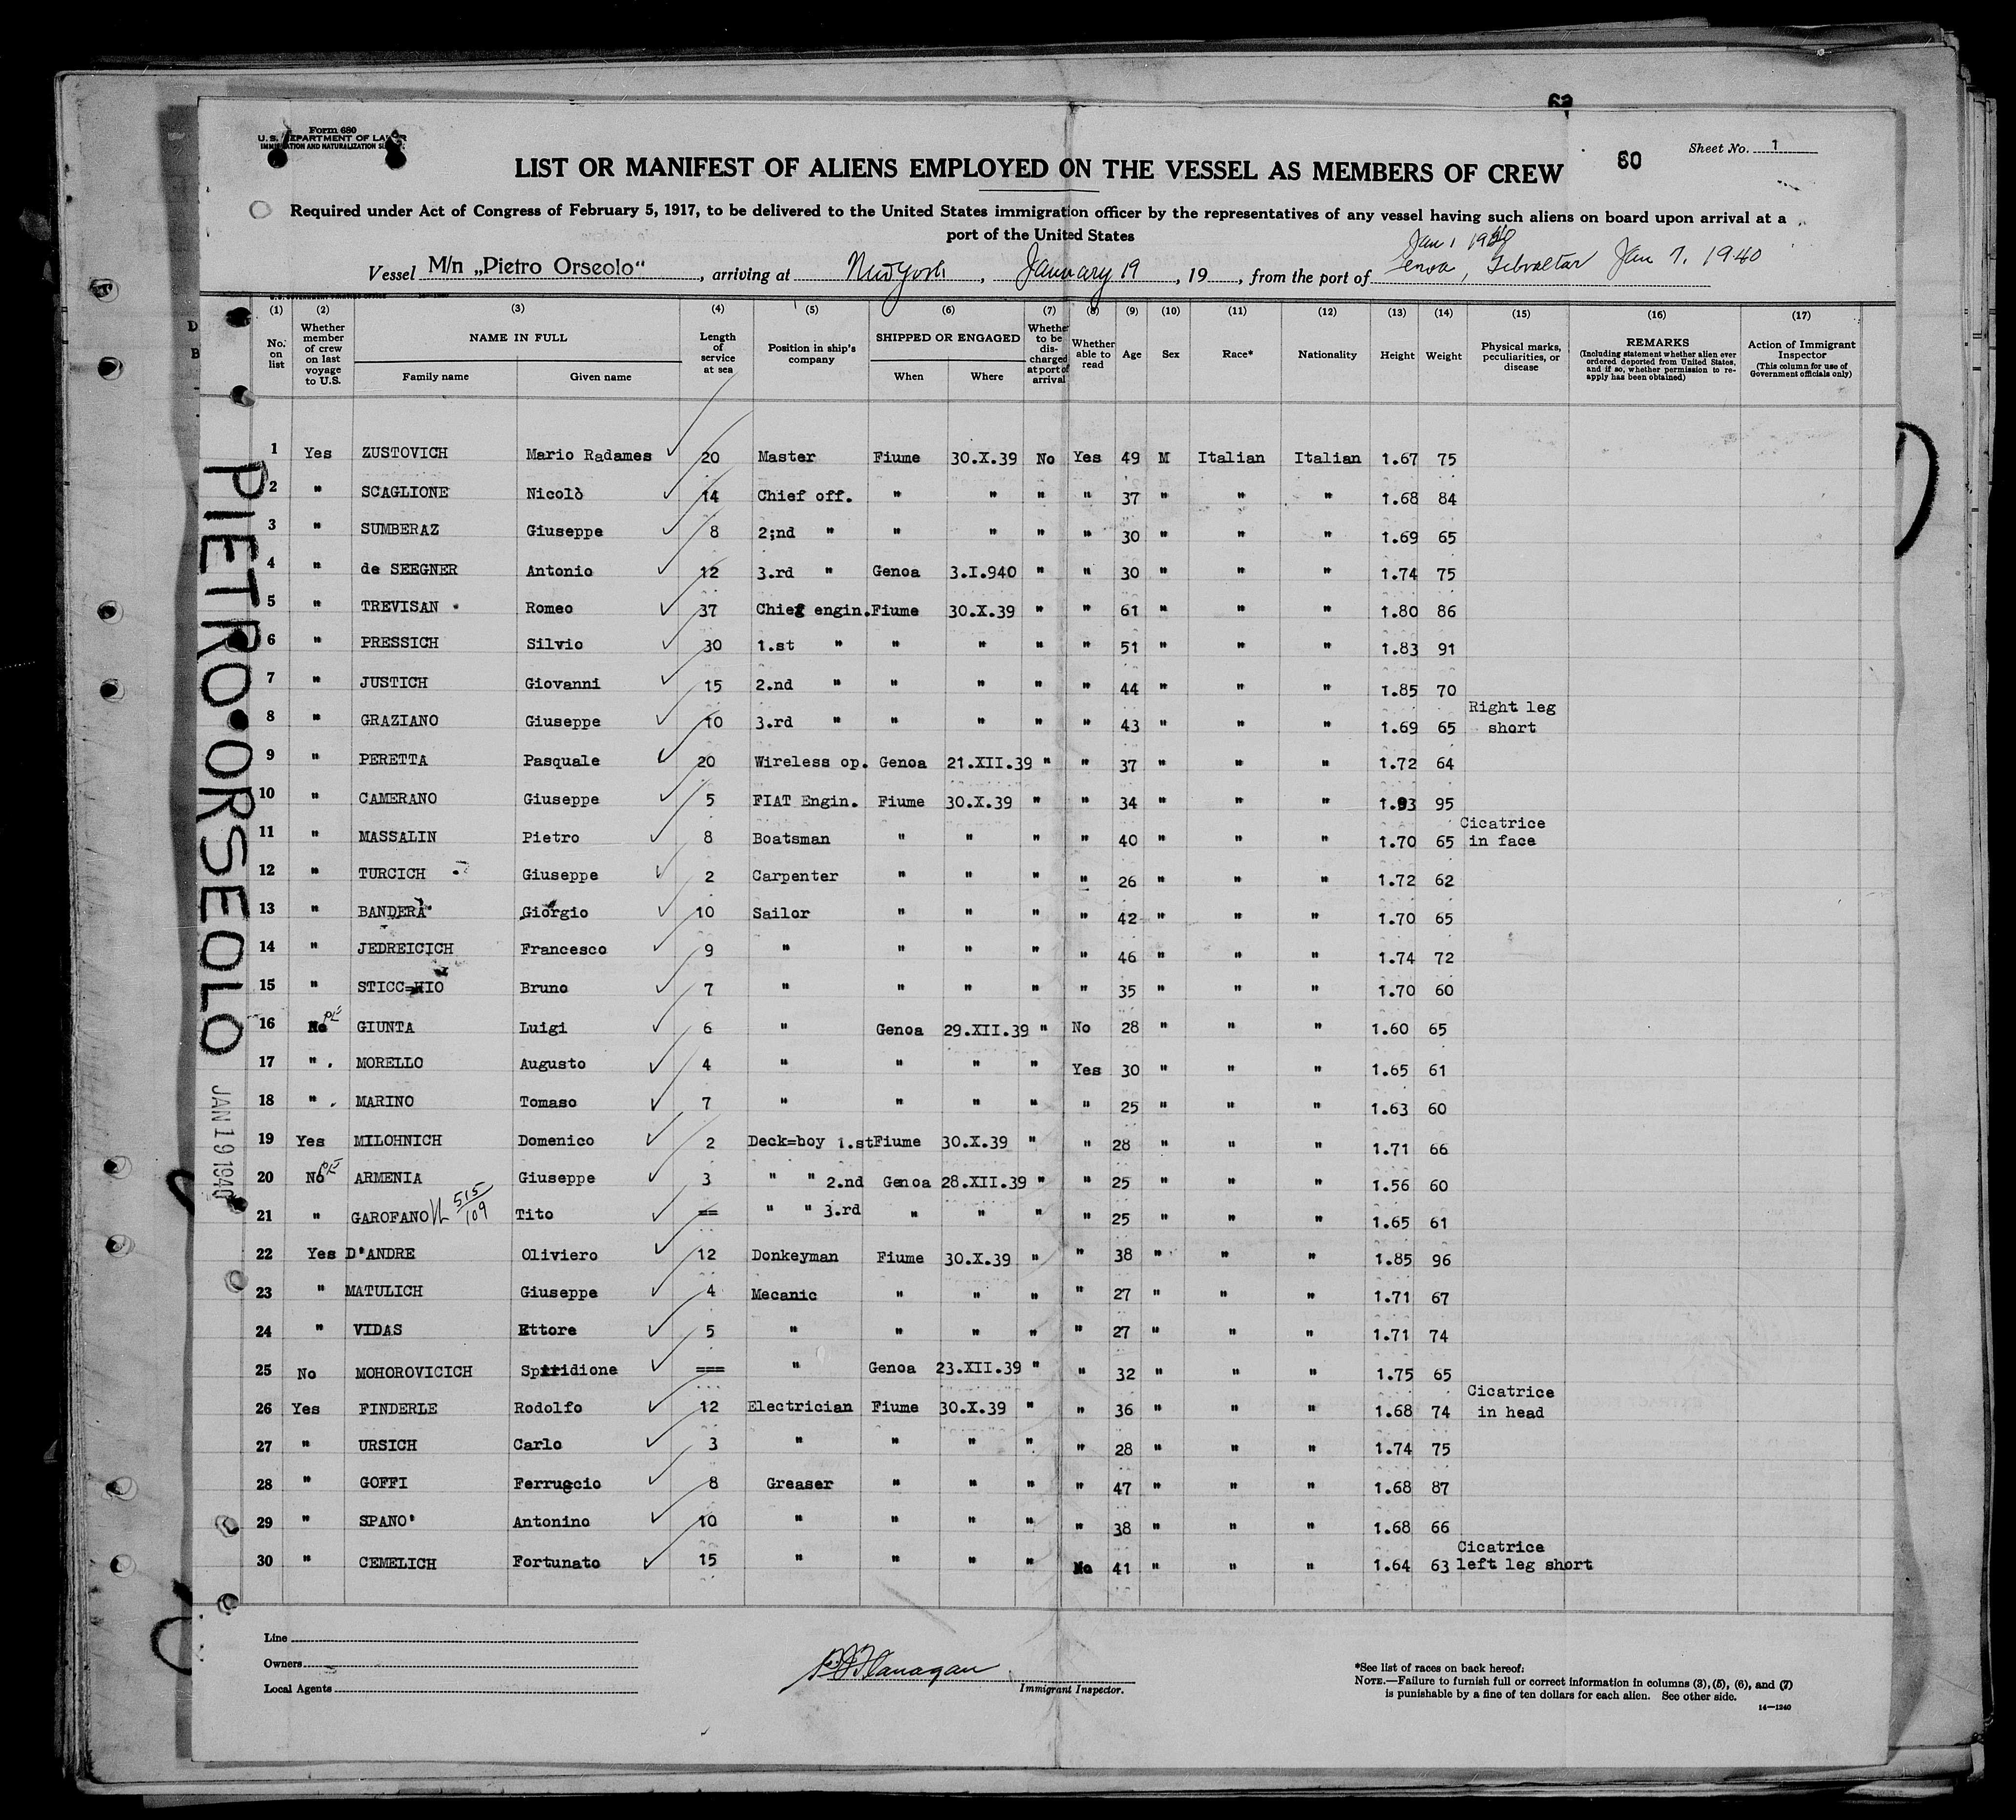 62
Form 680
U. S. DEPARTMENT OF LABOR
IMMIGRATION AND NATURALIZATION
Sheet No. 1
60
LIST OR MANIFEST OF ALIENS EMPLOYED ON THE VESSEL AS MEMBERS OF CREW
Required under Act of Congress of February 5, 1917, to be delivered to the United States immigration officer by the representatives of any vessel having such aliens on board upon arrival at a
port of the United States
Jan 1 1940
Vessel M/n „Pietro Orseolo“, arriving at New York, January 19, 19, from the port of Genoa, Gibraltar Jan 7. 1940
(1) (2) (3) (4) (5) (6) (7) (8) (9) (10) (11) (12) (13) (14) (15) (16) (17)
No. on list
Whether member of crew on last voyage to U.S.
NAME IN FULL
Family name Given name
Length of service at sea
Position in ship's company
SHIPPED OR ENGAGED
When Where
Whether to be discharged at port of arrival
Whether able to read
Age
Sex
Race*
Nationality
Height
Weight
Physical marks, peculiarities, or disease
REMARKS
(Including statement whether alien ever ordered deported from United States, and if so, whether permission to reapply has been obtained)
Action of Immigrant Inspector
(This column for use of Government officials only)
1 Yes ZUSTOVICH Mario Radames 20 Master Fiume 30.X.39 No Yes 49 M Italian Italian 1.67 75
2 " SCAGLIONE Nicolò 14 Chief off. " " " " 37 " " " 1.68 84
3 " SUMBERAZ Giuseppe 8 2;nd " " " " " 30 " " " 1.69 65
4 " de SEEGNER Antonio 12 3.rd " Genoa 3.I.940 " " 30 " " " 1.74 75
5 " TREVISAN Romeo 37 Chief engin. Fiume 30.X.39 " " 61 " " " 1.80 86
6 " PRESSICH Silvio 30 1.st " " " " " 51 " " " 1.83 91
7 " JUSTICH Giovanni 15 2.nd " " " " " 44 " " " 1.85 70
8 " GRAZIANO Giuseppe 10 3.rd " " " " " 43 " " " 1.69 65 Right leg short
9 " PERETTA Pasquale 20 Wireless op. Genoa 21.XII.39 " " 37 " " " 1.72 64
10 " CAMERANO Giuseppe 5 FIAT Engin. Fiume 30.X.39 " " 34 " " " 1.93 95
11 " MASSALIN Pietro 8 Boatsman " " " " 40 " " " 1.70 65 Cicatrice in face
12 " TURCICH Giuseppe 2 Carpenter " " " " 26 " " " 1.72 62
13 " BANDERA' Giorgio 10 Sailor " " " " 42 " " " 1.70 65
14 " JEDREICICH Francesco 9 " " " " " 46 " " " 1.74 72
15 " STICC=HIO Bruno 7 " " " " " 35 " " " 1.70 60
16 No GIUNTA Luigi 6 " Genoa 29.XII.39 " No 28 " " " 1.60 65
17 " MORELLO Augusto 4 " " " " Yes 30 " " " 1.65 61
18 " MARINO Tomaso 7 " " " " " 25 " " " 1.63 60
19 Yes MILOHNICH Domenico 2 Deck=boy 1.st Fiume 30.X.39 " " 28 " " " 1.71 66
20 No ARMENIA Giuseppe 3 " " 2.nd Genoa 28.XII.39 " " 25 " " " 1.56 60
21 " GAROFANO 515/109 Tito == " " 3.rd " " " " 25 " " " 1.65 61
22 Yes D'ANDRE Oliviero 12 Donkeyman Fiume 30.X.39 " " 38 " " " 1.85 96
23 " MATULICH Giuseppe 4 Mecanic " " " " 27 " " " 1.71 67
24 " VIDAS Ettore 5 " " " " " 27 " " " 1.71 74
25 No MOHOROVICICH Spiridione === " Genoa 23.XII.39 " " 32 " " " 1.75 65
26 Yes FINDERLE Rodolfo 12 Electrician Fiume 30.X.39 " " 36 " " " 1.68 74 Cicatrice in head
27 " URSICH Carlo 3 " " " " " 28 " " " 1.74 75
28 " GOFFI Ferruccio 8 Greaser " " " " 47 " " " 1.68 87
29 " SPANO' Antonino 10 " " " " " 38 " " " 1.68 66
30 " CEMELICH Fortunato 15 " " " " No 41 " " " 1.64 63 Cicatrice left leg short
PIETRO ORSEOLO
JAN 19 1940
Line
Owners
Local Agents
Flanagan
Immigrant Inspector.
*See list of races on back hereof.
NOTE.—Failure to furnish full or correct information in columns (3), (5), (6), and (7)
is punishable by a fine of ten dollars for each alien. See other side.
14—1240